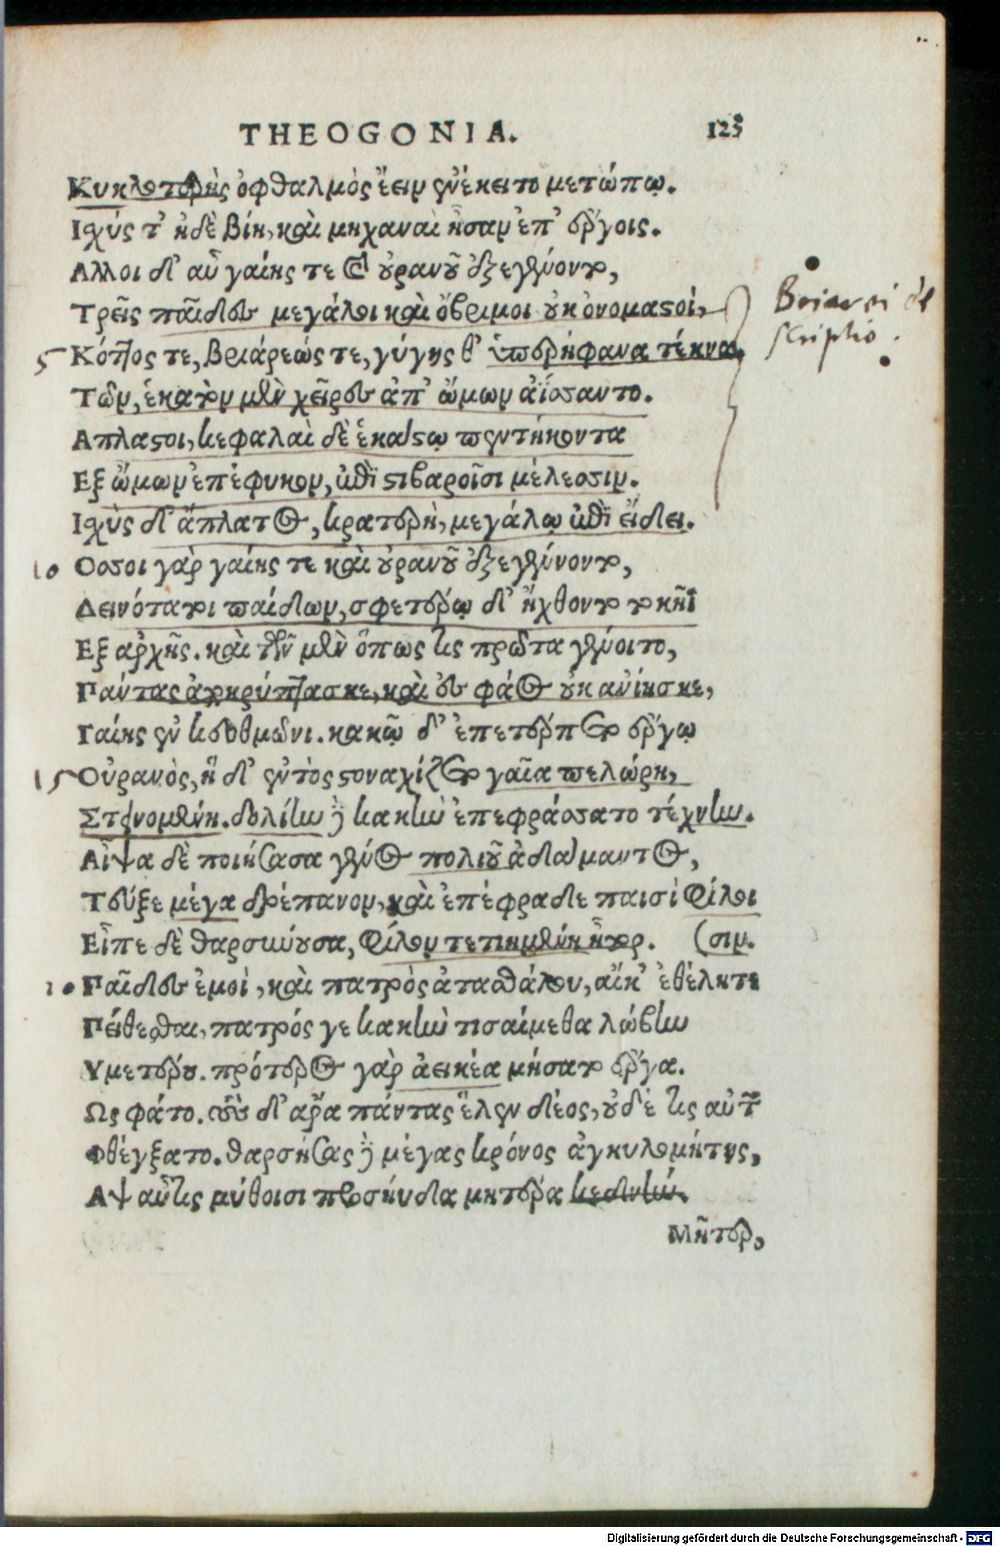 THEOGONIA. 125
Κυκλοτερὴς ὀφθαλμὸς ἔειν ἐνέκειτο μετώπῳ.
Ιχύς τ' ἠδὲ βίη, καὶ μηχαναὶ ἦσαν ἐπ' ἔργοις.
Αλλοι δ' αὖ γαίης τε καὶ οὐρανοῦ ἐξεγένοντο,
Τρεῖς παῖδες μεγάλοι καὶ ὄβριμοι οὐκ ὀνομαστοὶ,
5 Κόττος τε, βριάρεώς τε, γύγης θ' ὑπερήφανα τέκνα,
Τῶν, ἑκατὸν μὲν χεῖρες ἀπ' ὤμων ἀΐσσαντο.
Απλαστοι, κεφαλαὶ δὲ ἑκάστῳ πεντήκοντα
Εξ ὤμων ἐπέφυκον, ἐπὶ στιβαροῖσι μέλεσσιν.
Ιχὺς δ' ἄπλατος, κρατερὴ, μεγάλῳ ἐπὶ εἴδει.
10 Οσσοι γὰρ γαίης τε καὶ οὐρανοῦ ἐξεγένοντο,
Δεινότατοι παίδων, σφετέρῳ δ' ἤχθοντο τοκῆϊ
Εξ ἀρχῆς. καὶ τῶν μὲν ὅπως τις πρῶτα γένοιτο,
Πάντας ἀποκρύπτασκε, καὶ ἐς φάος οὐκ ἀνίησκε,
Γαίης ἐν κευθμῶνι. κακῷ δ' ἐπετέρπετο ἔργῳ
15 Οὐρανὸς, ἣ δ' ἐντὸς στοναχίζετο γαῖα πελώρη,
Στεινομένη. δολίην δὲ κακὴν ἐπεφράσσατο τέχνην.
Αἶψα δὲ ποιήσασα γένος πολιοῦ ἀδάμαντος,
Τεῦξε μέγα δρέπανον, καὶ ἐπέφραδε παισὶ φίλοι
Εἶπε δὲ θαρσύνουσα, φίλον τετιημένη ἦτορ. (σιν.
20 Παῖδες ἐμοὶ, καὶ πατρὸς ἀτασθάλου, αἴκ' ἐθέλητε
Πείθεσθαι, πατρός γε κακὴν τισαίμεθα λώβην
Υμετέρου. πρότερος γὰρ ἀεικέα μήσατο ἔργα.
Ως φάτο. τοὺς δ' ἄρα πάντας ἕλεν δέος, οὐδέ τις αὐτῶν
Φθέγξατο. θαρσήσας δὲ μέγας κρόνος ἀγκυλομήτης,
Αψ αὖτις μύθοισι προσηύδα μητέρα κεδνήν.
Μῆτερ,
Briarei de
scriptio.
Digitalisierung gefördert durch die Deutsche Forschungsgemeinschaft - DFG